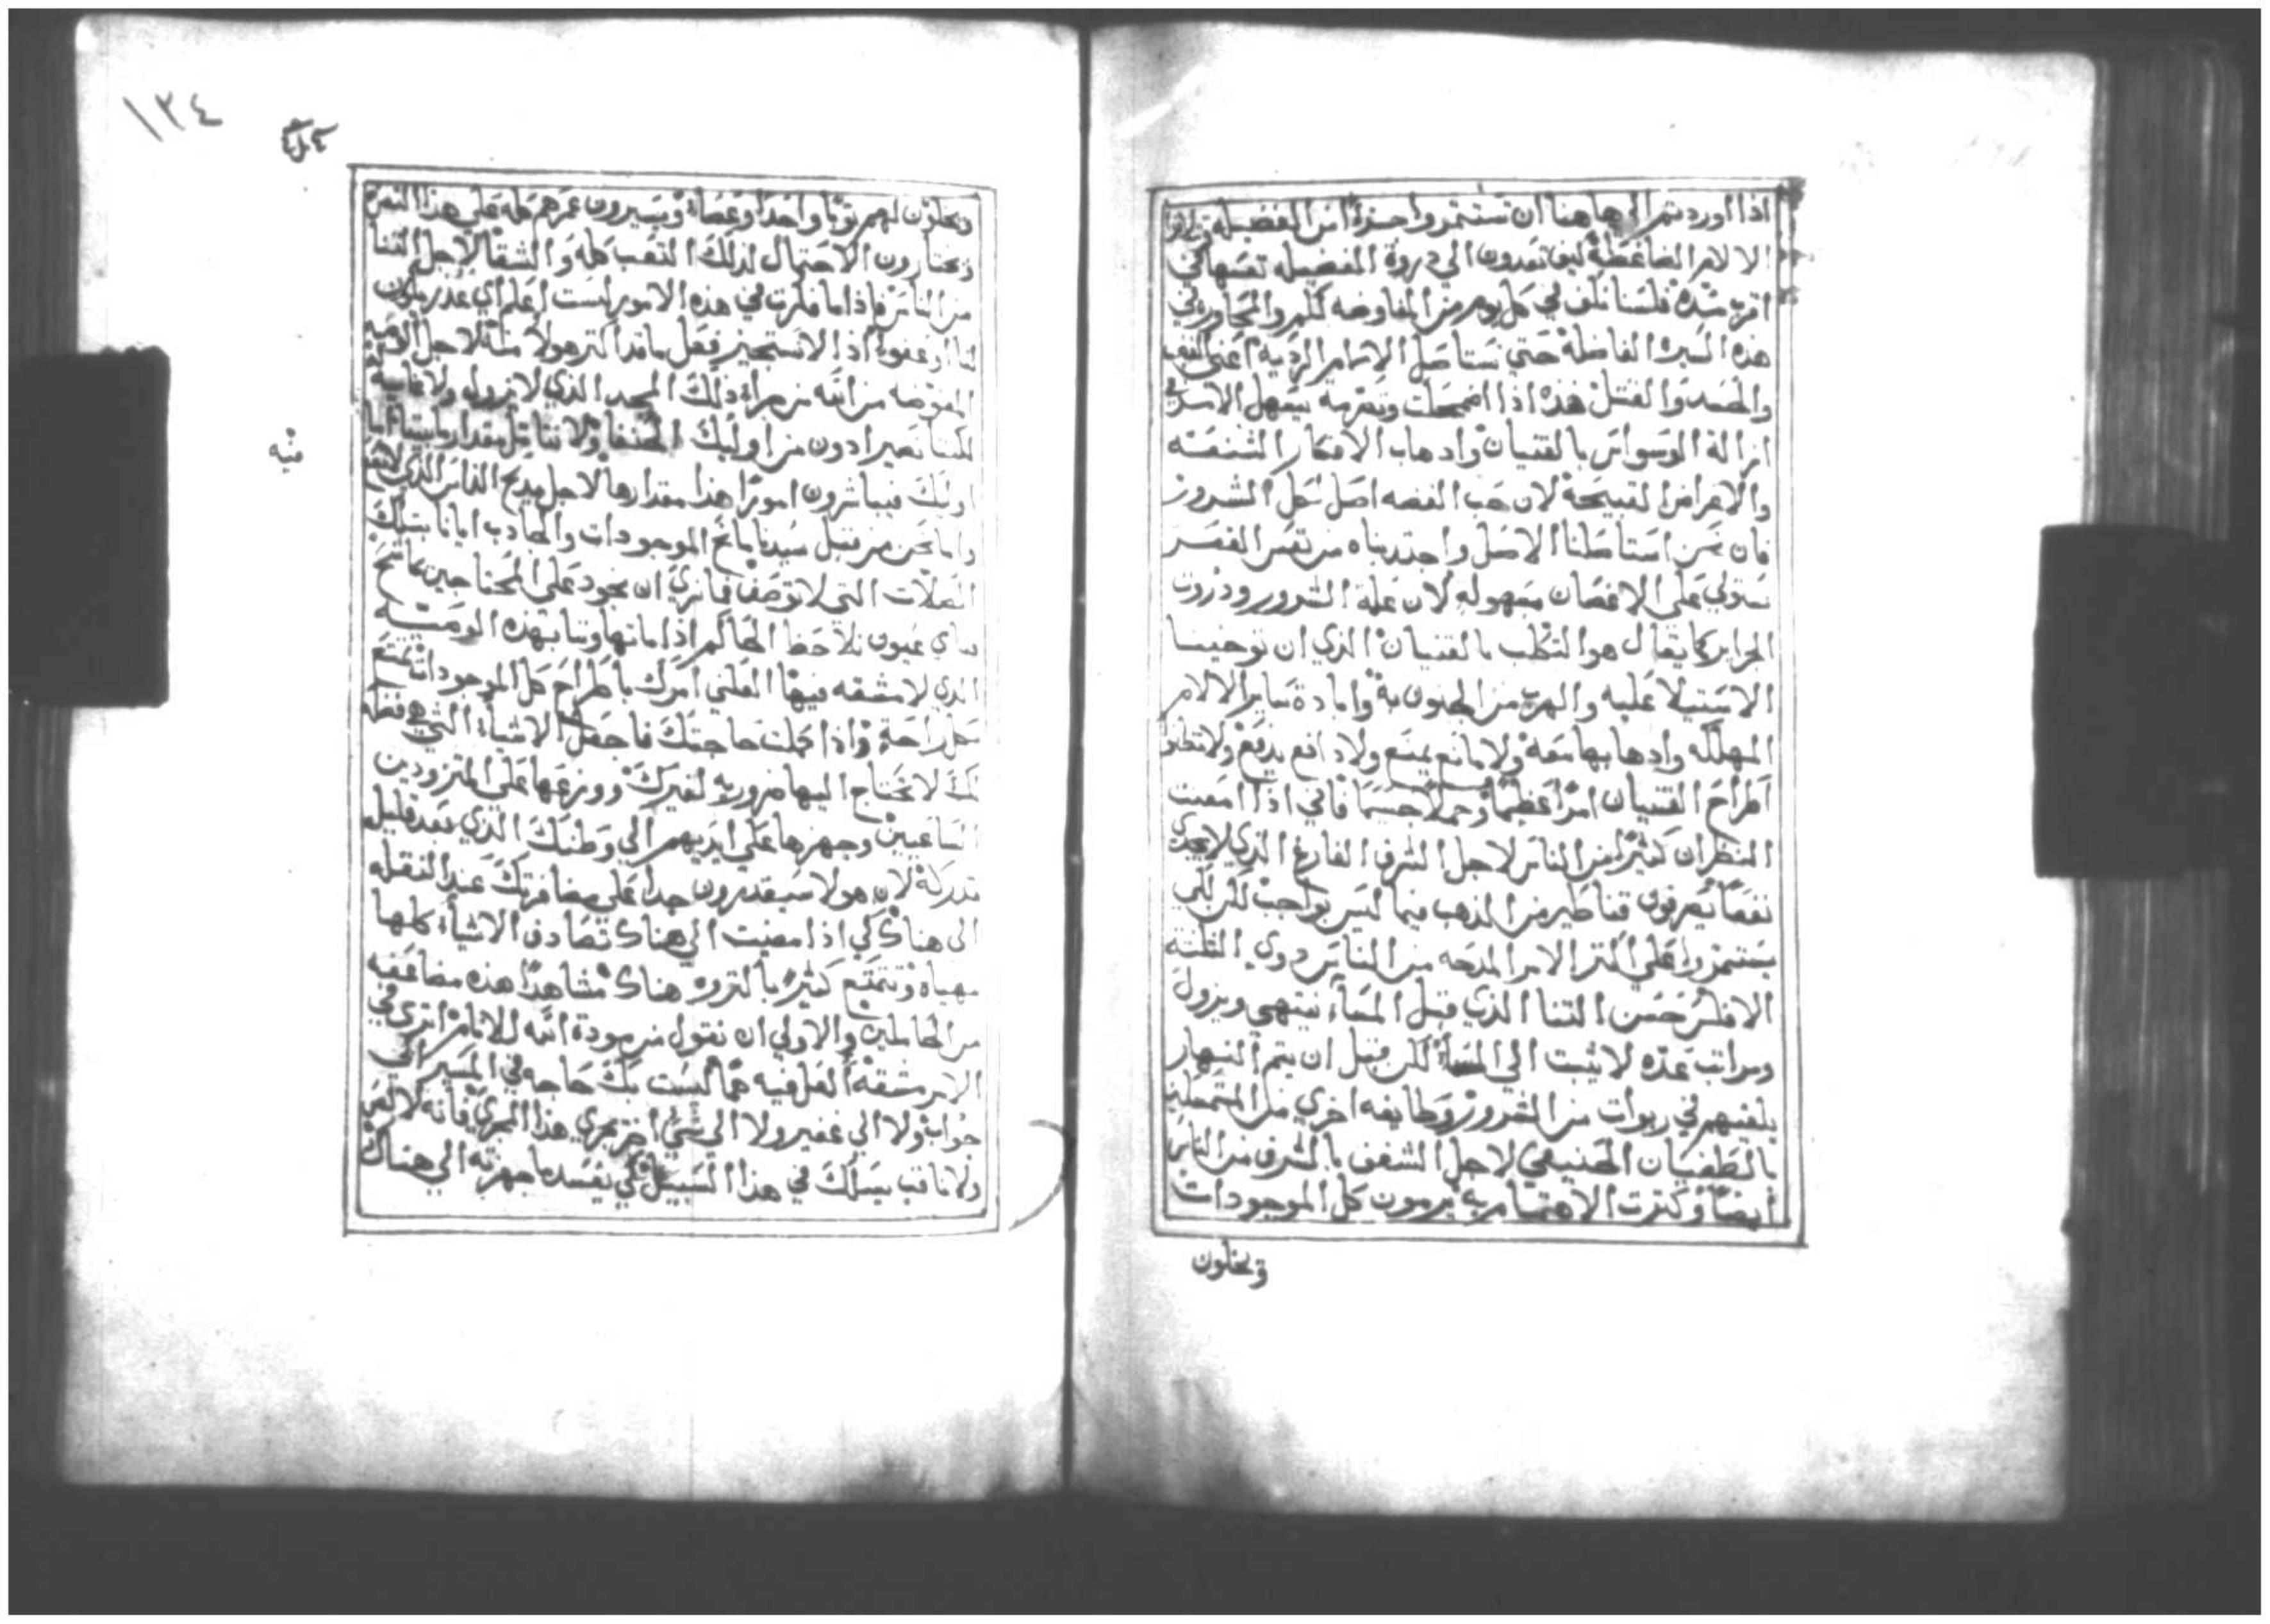 اذا اوردتم الى هاهنا ان تستثمروا جزءًا من الفضيله
الالام الضاغطة كيف تغدون الي دروة الفضيله نفسها كي
اقرب مده فلسنا نكف في كل يوم من المفاوضه لكم والمحاوره في
هذه السيره الفاضلة حتي نستاصل الالام الرديه اعني الغضب
والحسد والقتل فهذه اذا اضمحلت وتعرت يسهل الامر في
ازالة الوسواس بالقنيان واذهاب الافكار الشنعه
والامراض القبيحة لان حب الفضه اصل لكل الشرور
فان نحن استاصلنا الاصل واجتدبناه من نفس القعر
نستولي علي الاغصان بسهوله لان علة الشرور ودرون
الجراير كما يقال هو التكلب بالقنيان الذي ان توخينا
الاستيلا عليه والهرب من الجنون به وابادة ساير الالام
المهلكه وادهابها معه ولا مانع يمنع ولا دافع يدفع ولا تظنوا
اطراح القنيان امرًا عظيمًا وحملا جسيمًا فاني اذا امعنت
النظر ان كثيرًا من الناس لاجل الشرف الفارغ الذي لا يجدي
نفعًا يصرفون قناطير من الذهب فيما ليس بواجب لكن لكي
يستثمروا علي اكثر الامر المدحه من الناس دوي الثلثة
الافلس حسن الثنا الذي قبل المساء ينتهي ويزول
ومراتب عده لا يثبت الي المساء لكن قبل ان يتم النهار
يلقيهم في ربوات من الشرور وطايفه اخري من المتمسكين
بالطغيان الحنيفي لاجل الشغف بالشرف من الناس
ايضًا وكثرت الاهتمام به يرمون كل الموجودات
ويخلون
١٢٤
ويخلون لهم ثوبًا واحدًا وعصاة ويسيرون عمرهم كله علي هذا النحو
ويختارون الاحتمال لذلك التعب كله والشقا لاجل الثنا
من الناس فاذا ما فكرت في هذه الامور لست اعلم اي عذر يكون
لنا او عفو اذا لا نستجيز فعل ما قد اكثر هولا مثله لاجل الوصيه
المفوضه من الله من جراء ذلك المجد الذي لا يزول ولا نهاية
لكننا نصير ادون من اوليك الحنفا ولا نتامل مقدار
اوليك فيباشرون امورًا هذا مقدارها لاجل مديح الناس الذي
واما نحن من قبل سيدنا مانح الموجودات والجادب ايانا بتلك
الصلات التي لا توصف فما نري ان نجود علي المحتاجين
باي عيون نلاحظ الحاكم اذا ما تهاوننا بهذه الوصيه
الذي لا مشقه فيها العلني امرك باطراح كل الموجودات تمتع
بكل راحة واذا كملت حاجتك فاجعل الاشياء التي هي فضله
لك لا تحتاج اليها ضروريه لغيرك ووزعها علي المتزودين
الساعيين وجهزها علي ايديهم الي وطنك الذي بعد قليل
تدركه لان هولا سيقدرون جدا علي مضافرتك عند النقله
الى هناك كي اذا مضيت الي هناك تصادف الاشياء كلها
مهياه وتتمتع كثيرًا بالثروه هناك مشاهدًا هذه مضاعفه
من الحاملين والاولي ان نقول من مودة الله للانام اتري في
الامر مشقة العل فيه همًا لست بك حاجه في المسير الي
جواب ولا الي غفير ولا الي شي اخر يجري هذا المجري فانه لا لص
ولا ناقب يسلك في هذا السبيل لكي يفسد ما جهزته الي هناك